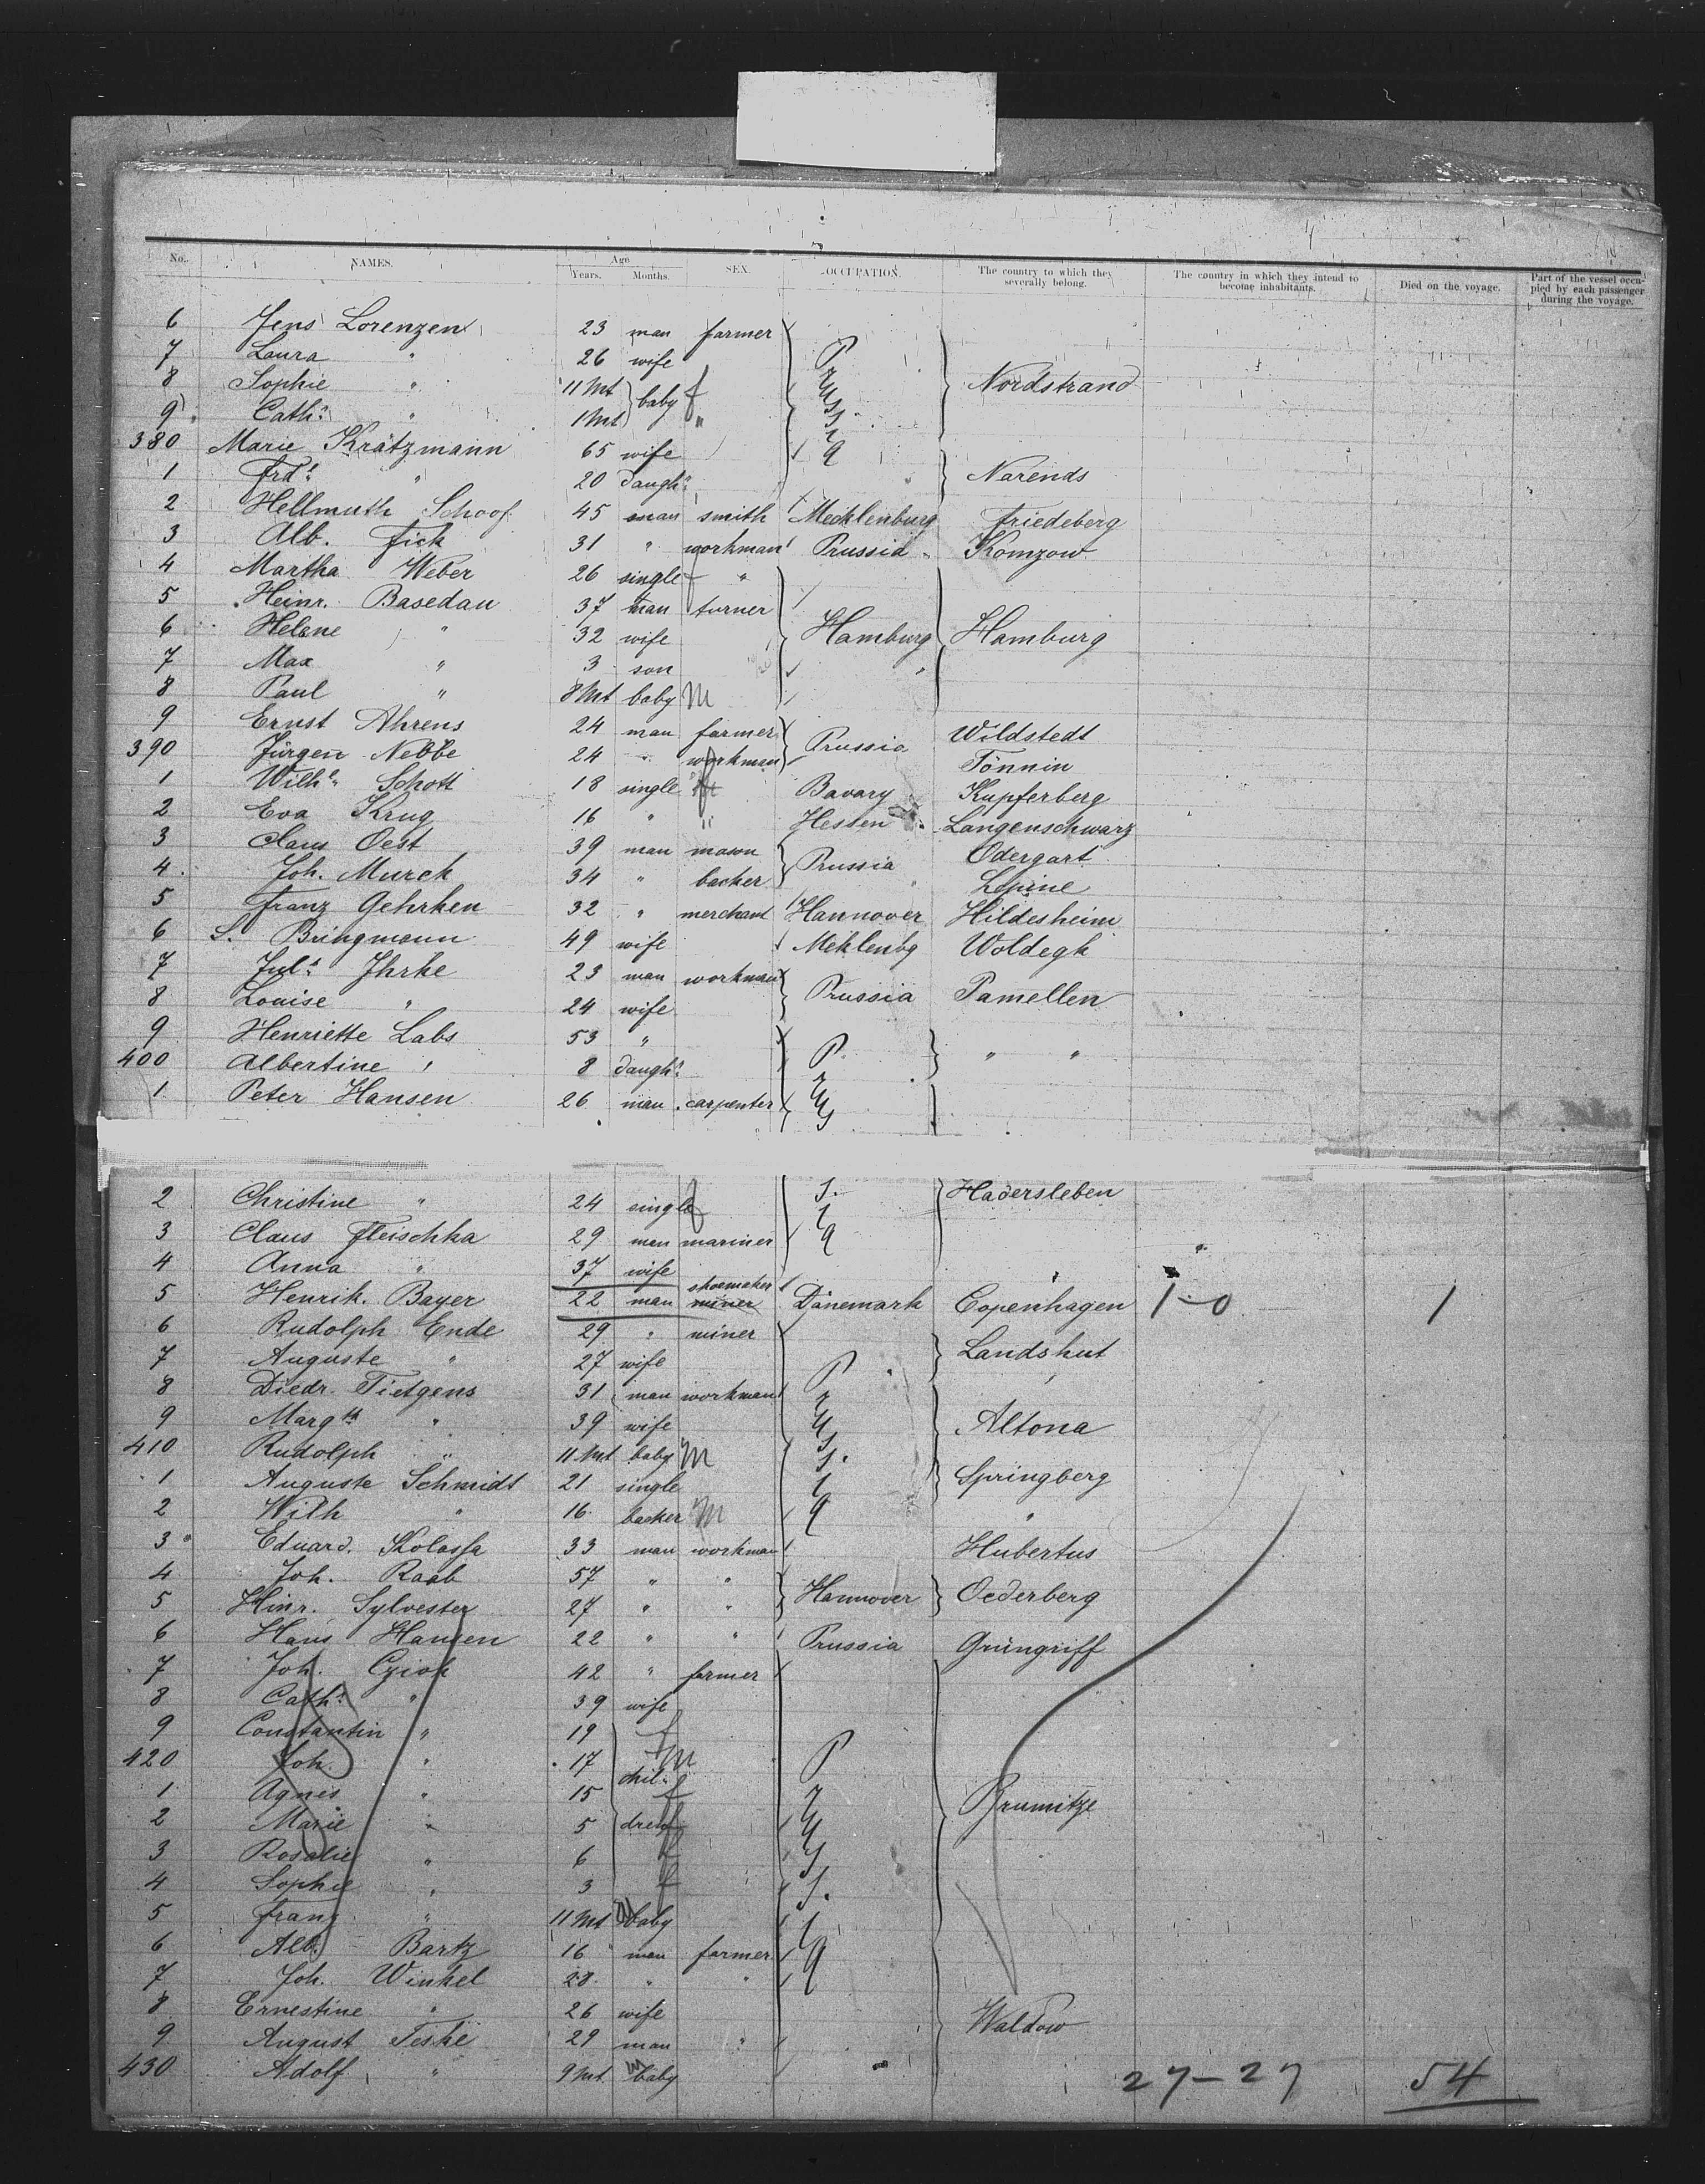 No. NAMES. Age Years. Months. SEX. OCCUPATION. The country to which they severally belong. The country in which they intend to become inhabitants. Died on the voyage. Part of the vessel occupied by each passenger during the voyage.
6 Jens Lorenzen 23 man farmer
7 Laura " 26 wife
8 Sophie " 11 Mt baby f Prussia Nordstrand
9 Cath. " 1 Mt "
380 Marie Krätzmann 65 wife
1 Frd. " 20 daugh. Narends
2 Hellmuth Schoof 45 man smith Mecklenburg Friedeberg
3 Alb. Fick 31 " workman Prussia Komzow
4 Martha Weber 26 single "
5 Heinr. Basedau 37 man turner
6 Helene " 32 wife Hamburg Hamburg
7 Max " 3 son
8 Paul " 8 Mt baby M
9 Ernst Ahrens 24 man farmer Prussia Wildstedt
390 Jürgen Nebbe 24 " workman Tönnin
1 Wilh. Schott 18 single f Bavary Kupferberg
2 Eva Krug 16 " " Hessen Langenschwarz
3 Claus Oest 39 man mason Prussia Odergart
4 Joh. Murck 34 " backer Lepine
5 Franz Gehrken 32 " merchant Hannover Hildesheim
6 S. Bringmann 49 wife Meklenbg Woldegk
7 Jul. Ihrke 23 man workman Prussia Pamellen
8 Louise " 24 wife
9 Henriette Labs 53 " " "
400 Albertine " 8 daugh.
1 Peter Hansen 26 man carpenter
2 Christine " 24 single f Hadersleben
3 Claus Fleischka 29 man mariner
4 Anna " 37 wife
5 Henrik. Bayer 22 man miner shoemaker Dänemark Copenhagen 1-0 1
6 Rudolph Ende 29 " miner Landshut
7 Auguste " 27 wife
8 Diedr. Tietgens 31 man workman
9 Margth " 39 wife Altona
410 Rudolph " 11 Mt baby M
1 Auguste Schmidt 21 single Springberg
2 Wilh " 16 backer M "
3 Eduard. Kolassa 33 man workman Hubertus
4 Joh. Raab 57 " " Hannover Oederberg
5 Hinr. Sylvester 27 " "
6 Hans Hansen 22 " " Prussia Grüngriff
7 Joh. 42 " farmer
8 Cath. " 39 wife
9 Constantin " 19 f
420 Joh. " 17 M
1 Agnes " 15 chil- f
2 Marie " 5 dren f
3 Rosalie " 6 f
4 Sophie " 3 f
5 Franz " 11 Mt baby
6 Alb. Bartz 16 man farmer
7 Joh. Winkel 28 " "
8 Ernestine " 26 wife Waldow
9 August Teske 29 man "
430 Adolf " 9 Mt. M baby
27-27 54